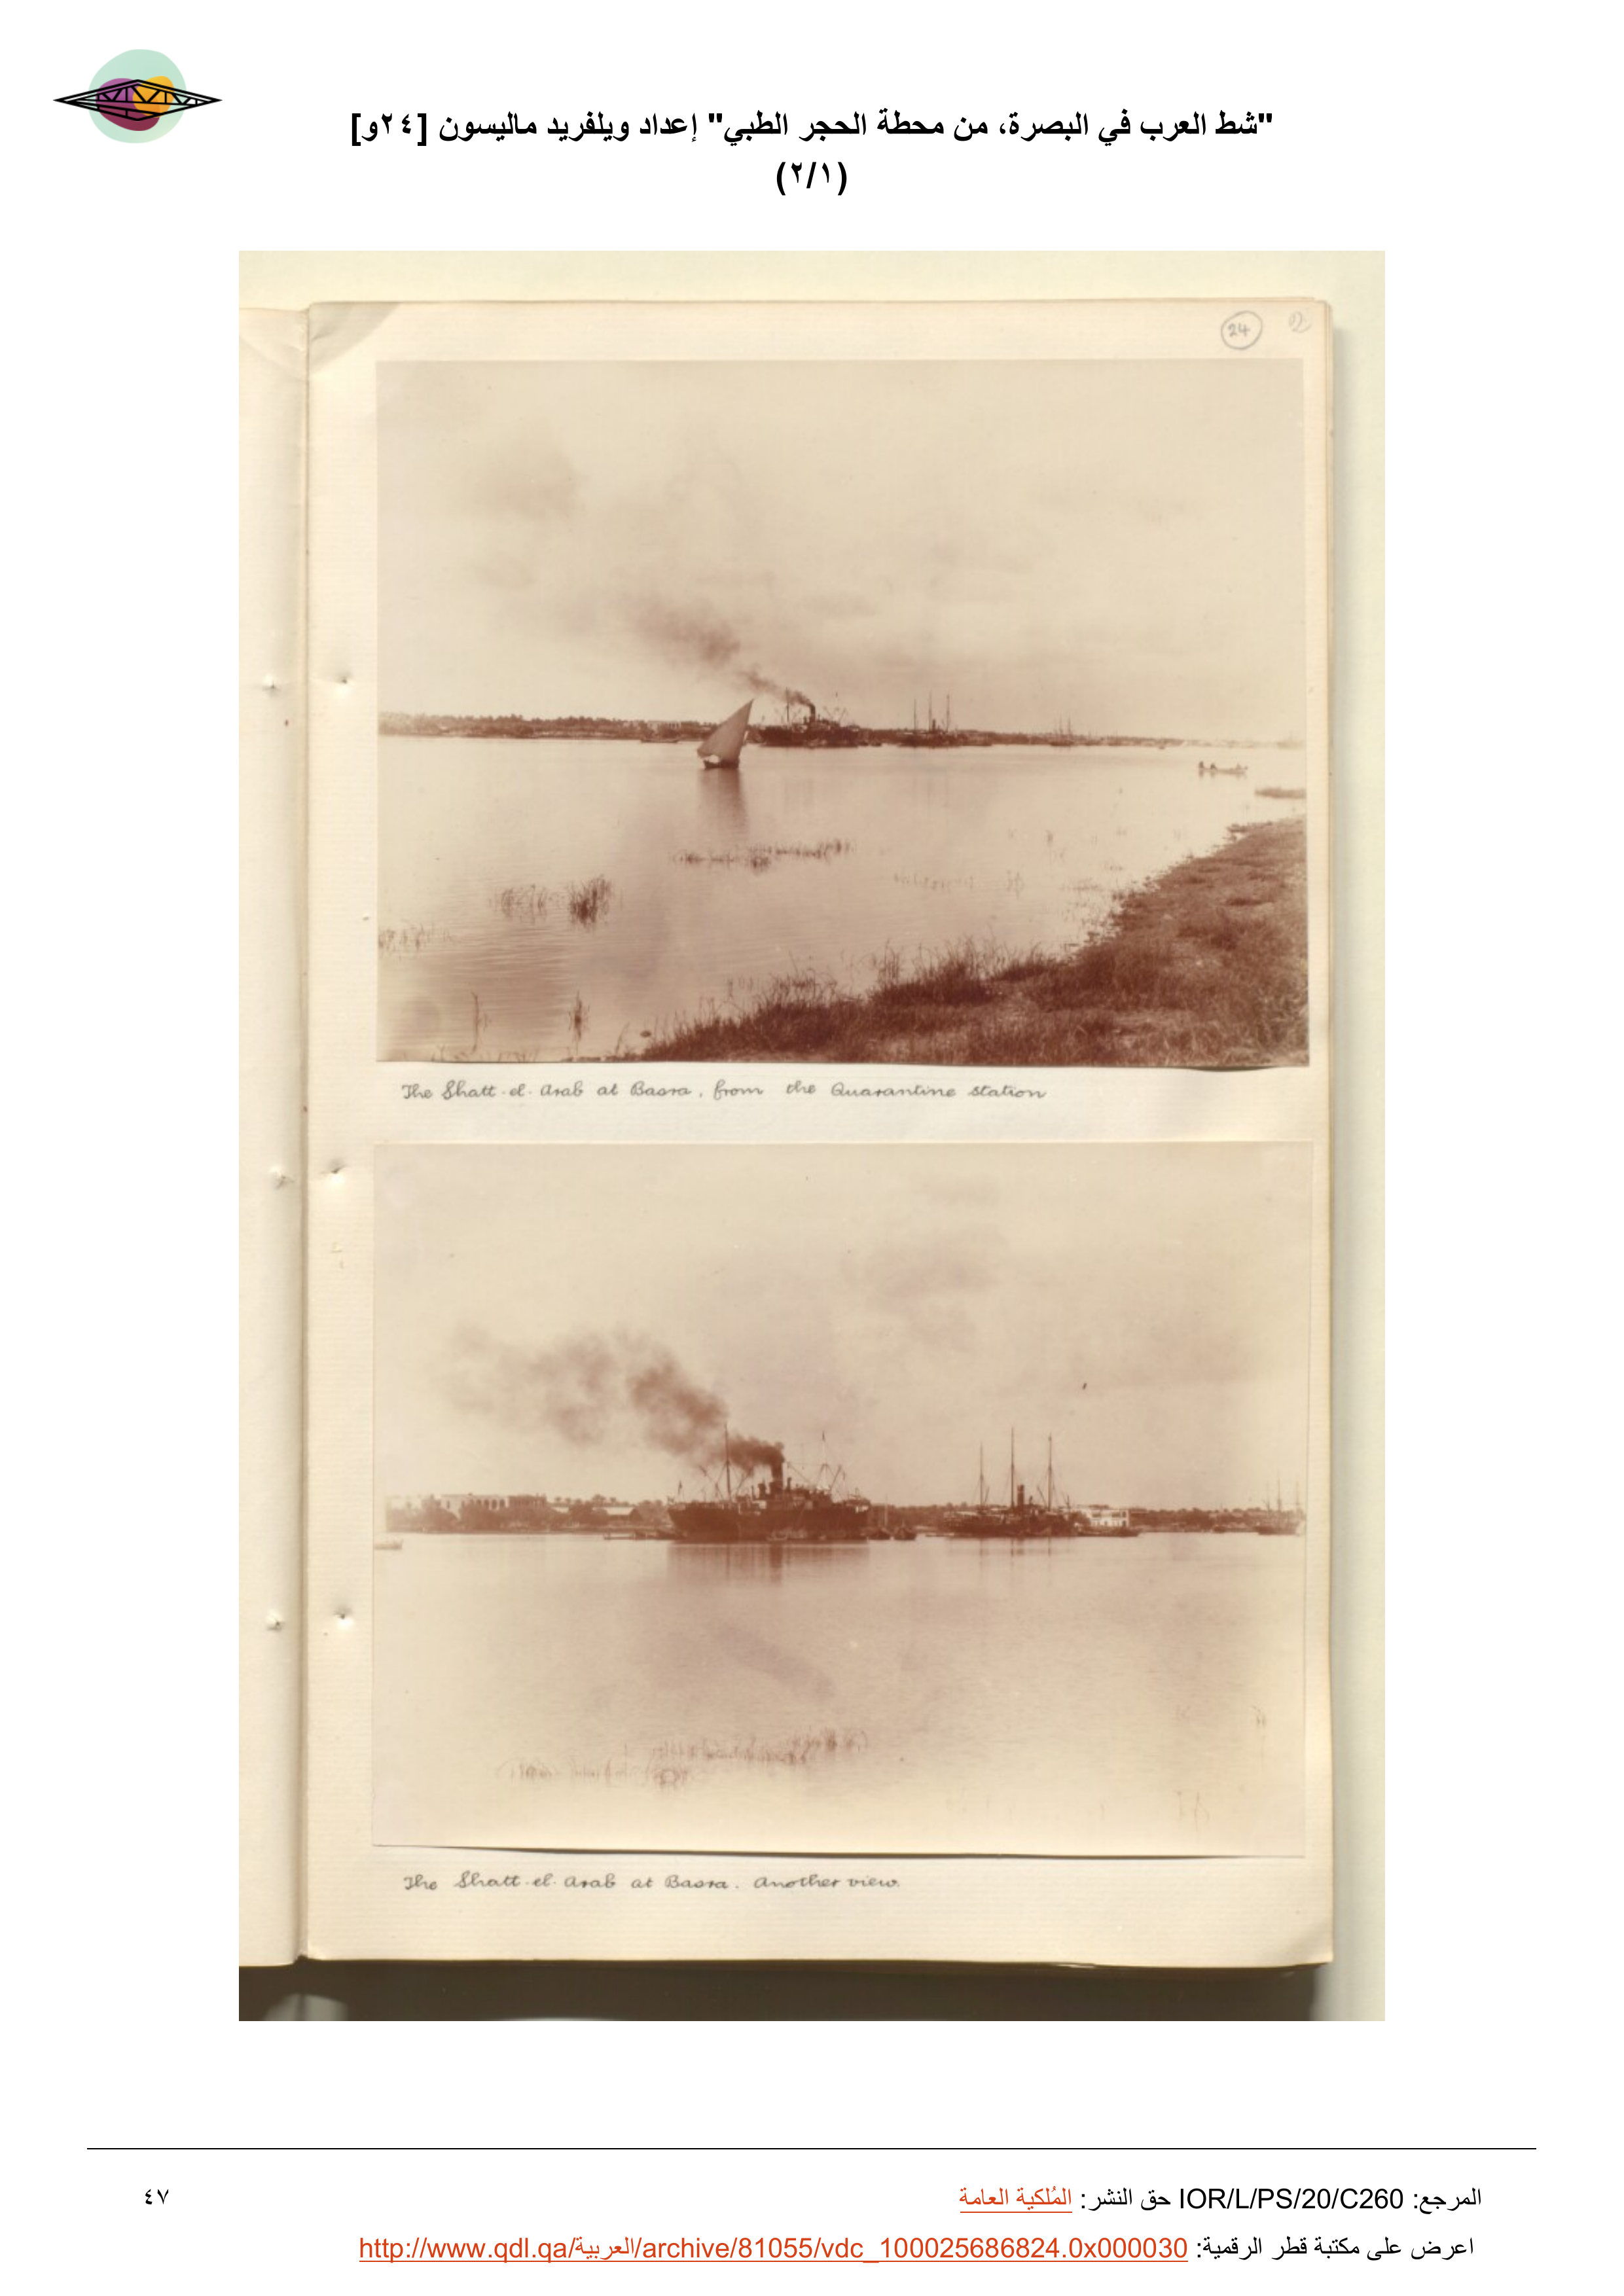 "شط العرب في البصرة، من محطة الحجر الطبي" إعداد ويلفريد ماليسون [٢٤و]
(٢/١)
24
2
The Shatt-el-Arab at Basra, from the Quarantine Station
The Shatt-el-Arab at Basra. Another view.
المرجع: IOR/L/PS/20/C260 حق النشر: المُلكية العامة
٤٧
اعرض على مكتبة قطر الرقمية: http://www.qdl.qa/العربية/archive/81055/vdc_100025686824.0x000030